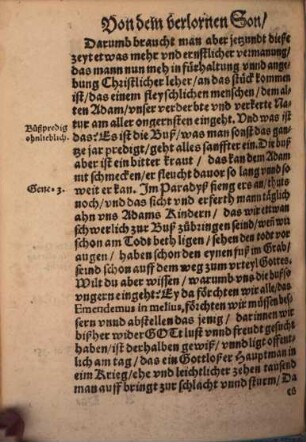 Von dem verlornen Son/
Darumb braucht man aber jezundt dieße
zeyt etwas mehr und ernstlicher vermanung/
das mann nun meh in fürhaltung unnd ange-
bung Christlicher leher/ an das stuck kommen
ist/ das einem fleyschlichen menschen/ dem al-
ten Adam/ unser verderbte und verkerte Na-
tur am aller ongernsten eingeht. Und was ist
Büßpredig
ohnlieblich.
das? Es ist die Buß/ was man sonst das gan-
tze jar predigt/ geht alles sanffter ein. Die buß
aber ist ein bitter kraut/ das kan dem Adam
nit schmecken/ er fleucht davor so lang unnd so
Gene. 3.
weit er kan. Im Paradyß fieng ers an/ thuts
noch/ und das sicht und erferth mann täglich
ahn uns Adams Kindern/ das wir ettwan
schwerlich zur Buß zübringen seind/ wenn wir
schon am Todt beth ligen/ sehen den todt vor
augen/ haben schon den eynen fuß im Grab/
seind schon auff dem weg zum vrteyl Gottes.
Wilt du aber wissen/ warumb uns die buß so
ungern eingeht? Ey da förchten wir alle/ das
Emendemus in melius, förchten wir müssen bes-
sern unnd abstellen das jenig/ dar innen wir
bißher wider GOtt lust unnd freudt gesucht
haben/ ist derhalben gewiß/ unnd ligt offent-
lich am tag/ das ein Gottloßer Hauptman in
eim Krieg/ ehe und leichtlicher zehen tausend
man auff bringt zur schlacht unnd sturm/ Da
es